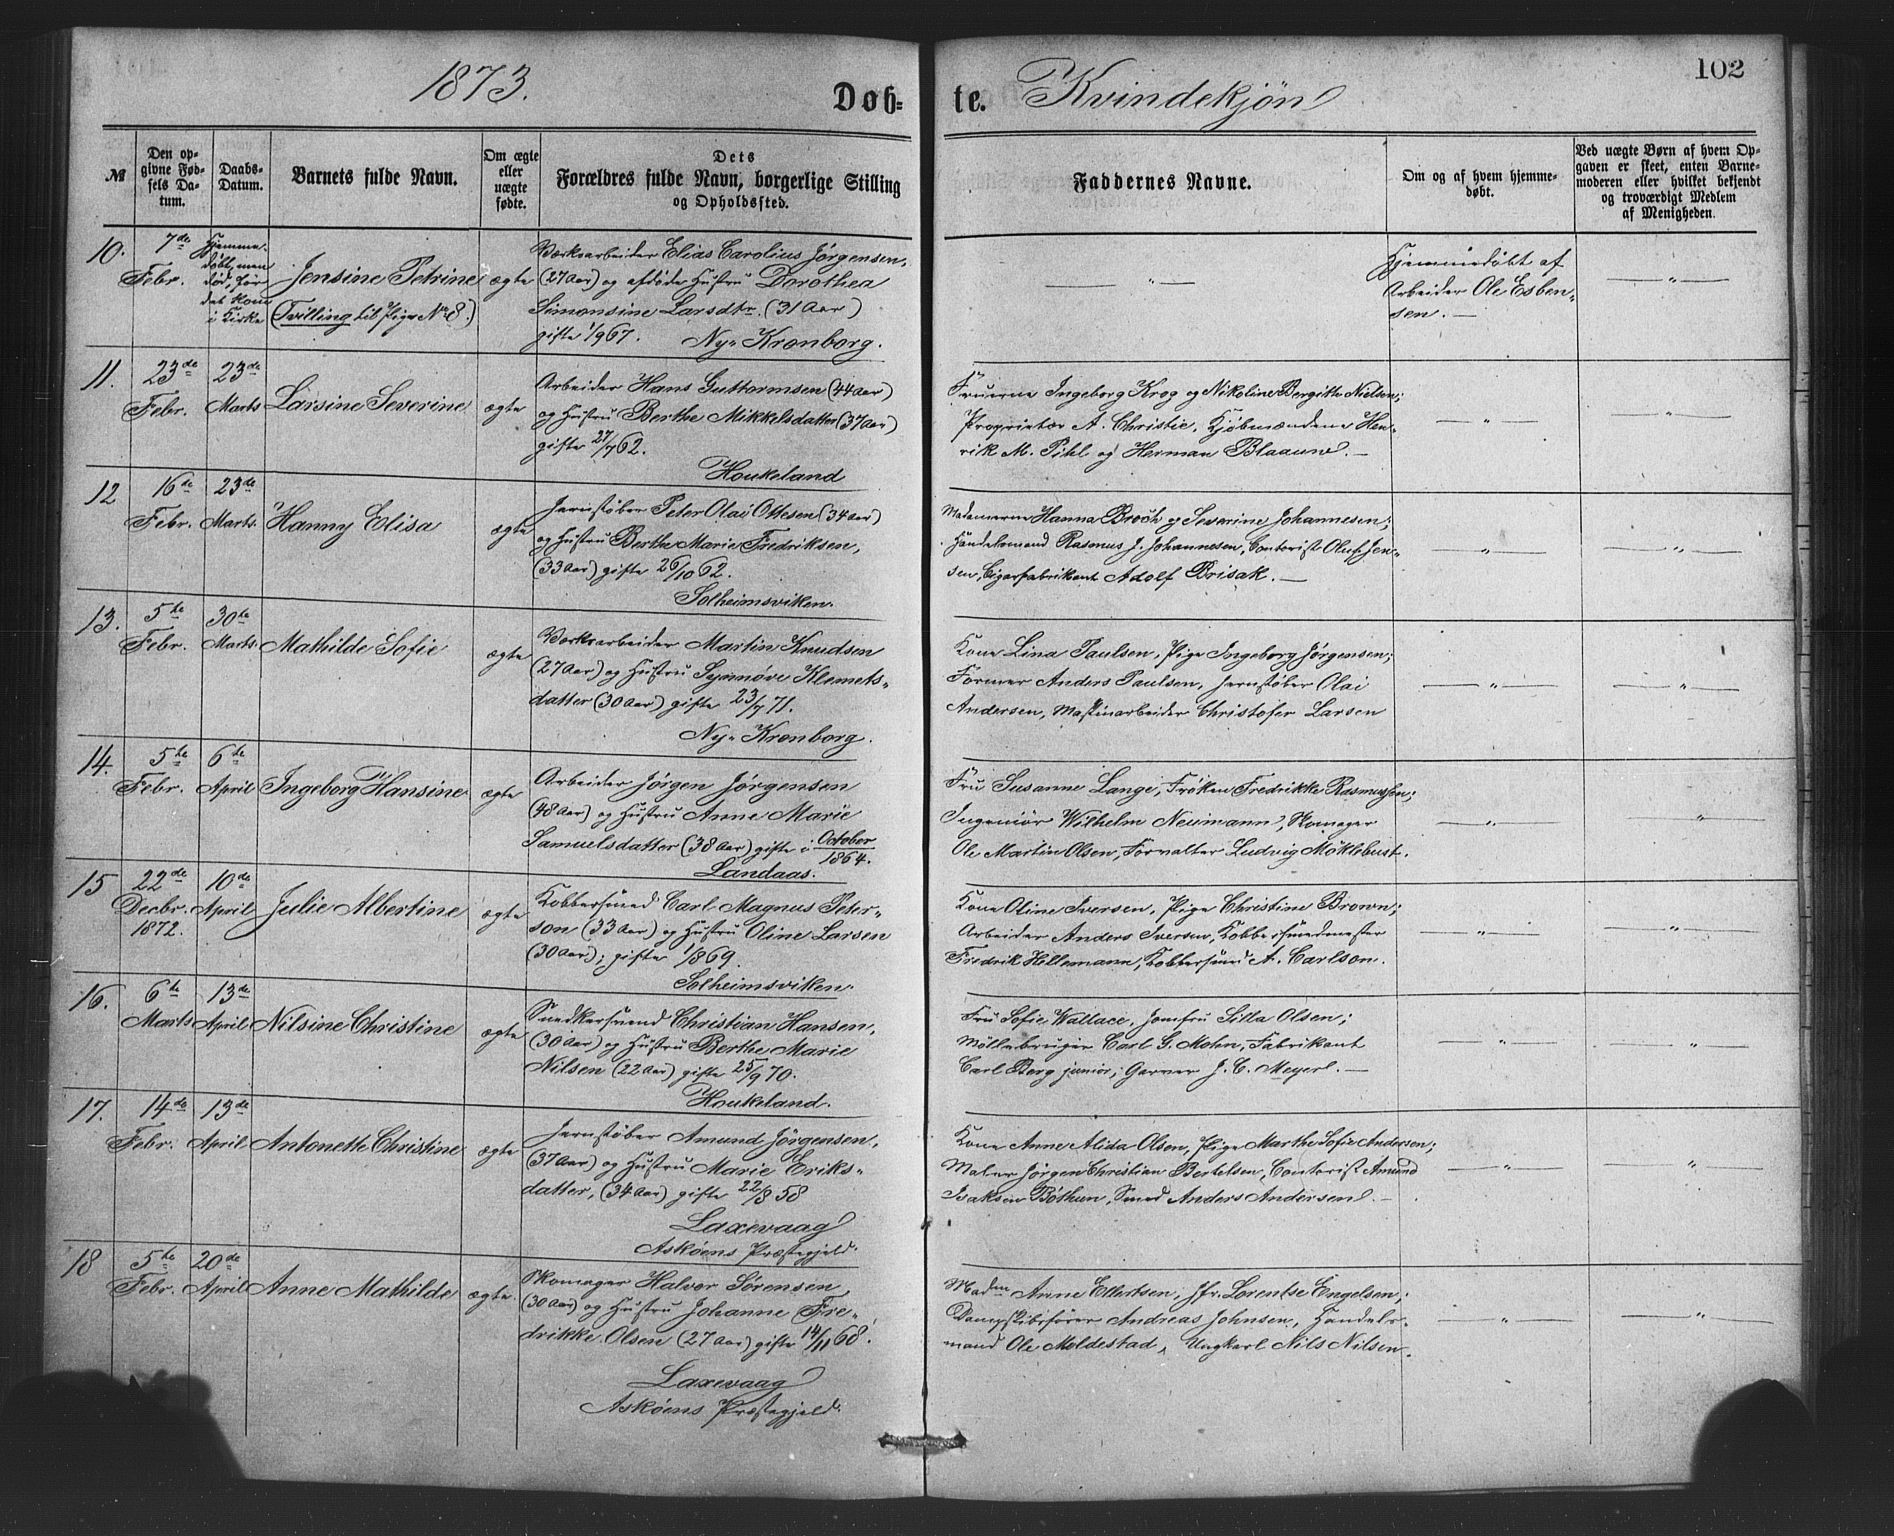 1873.
Døb=
te.
Kvindekjøn
102
№
Den op-
givne Fød-
sels Da-
tum.
Daabs-
Datum.
Barnets fulde Navn.
Om ægte
eller
uægte
fødte.
Dets
Forældres fulde Navn, borgerlige Stilling
og Opholdssted.
Faddernes Navne.
Om og af hvem hjemme-
døbt.
Ved uægte Børn af hvem Op-
gaven er skeet, enten Barne-
moderen eller hvilket bekjendt
og troværdigt Medlem
af Menigheden.
10.
7de
Febr.
Hjemme-
døbt, men
død, før
det kom
i Kirke
Jensine Petrine
(Tvilling til Pige No 8.)
ægte
Værksarbeider Elias Carolius Jørgensen,
(27 Aar) og afdøde Hustru Dorothea
Simonsine Larsdtr. (31 Aar)
gifte 1/9 67. Ny-Kronborg.
— " —
Hjemmedøbt af
Arbeider Ole Esben-
sen. —
— " —
11.
23de
Febr.
23de
Marts
Larsine Severine
ægte
Arbeider Hans Guttormsen (44 Aar)
og Hustru Berthe Mikkelsdatter (37 Aar)
gifte 27/7 62.
Houkeland
Fruerne Ingeborg Krog og Nikoline Bergitte Nielsen;
Proprietær A. Christie, Kjøbmændene Hen-
rik M. Pihl og Herman Blaauw. —
— " —
— " —
12
16de
Febr.
23de
Marts.
Hanny Elisa
ægte
Jernstøber Peter Olai Ottesen (34 Aar)
og Hustru Berthe Marie Fredriksen,
(33 Aar) gifte 26/10 62.
Solheimsviken.
Madamerne Hanna Broch og Severine Johannesen;
Handelsmand Rasmus J. Johannesen, Contorist Oluf Jen-
sen, Cigarfabrikant Adolf Brisak. —
— " —
— " —
13.
5te
Febr.
30te
Marts.
Mathilde Sofie
ægte
Værksarbeider Martin Knudsen
(27 Aar) og Hustru Synnøve Klemets-
datter (30 Aar) gifte 23/7 71.
Ny-Kronborg.
Kone Lina Paulsen, Pige Ingeborg Jørgensen;
Former Anders Paulsen, Jernstøber Olai
Andersen, Maskinarbeider Christofer Larsen
— " —
— " —
14.
5te
Febr.
6te
April
Ingeborg Hansine
ægte
Arbeider Jørgen Jørgensen
(48 Aar) og Hustru Anne Marie
Samuelsdatter (38 Aar) gifte i October
1864.
Landaas.
Fru Susanne Lange, Frøken Fredrikke Rasmussen;
Ingeniør Wilhelm Neumann, Skomager
Ole Martin Olsen, Forvalter Ludvig Møklebust.
— " —
— " —
15
22de
Decbr.
1872.
10de
April
Julie Albertine
ægte
Kobbersmed Carl Magnus Peter-
son (33 Aar) og Hustru Oline Larsen
(30 Aar); gifte 1/8 69.
Solheimsviken.
Kone Oline Iversen, Pige Christine Brown;
Arbeider Anders Iversen, Kobbersmedmester
Fredrik Hellemann, Kobbersmed A. Carlson.
— " —
— " —
16.
6te
Marts
13de
April
Nilsine Christine
ægte
Snedkersvend Christian Hansen,
(30 Aar) og Hustru Berthe Marie
Nilsen (22 Aar) gifte 25/9 70.
Houkeland.
Fru Sofie Wallace, Jomfru Silla Olsen;
Møllebruger Carl G. Mohn, Fabrikant
Carl Berg junior; Garver J. C. Meyerl. —
— " —
— " —
17.
14de
Febr.
13de
April
Antonette Christine
ægte
Jernstøber Amund Jørgensen,
(37 Aar) og Hustru Marie Eriks-
datter, (34 Aar) gifte 22/8 58
Laxevaag
Askøens Præstegjeld.
Kone Anne Alida Olsen, Pige Marthe Sofie Andersen;
Maler Jørgen Christian Bertelsen, Contorist Amund
Isaksen Bøthun, Smed Anders Andersen. —
— " —
— " —
18
5te
Febr.
20de
April
Anne Mathilde
ægte.
Skomager Halvor Sørensen
(30 Aar) og Hustru Johanne Fre-
drikke Olsen (27 Aar) gifte 14/11 68.
Laxevaag
Askøens Præstegjeld.
Madm Anne Ellertsen, Jfr. Lorentse Engelsen;
Dampskibsfører Andreas Johnsen, Handels-
mand Ole Moldestad, Ungkarl Nils Nilsen.
— " —
— " —